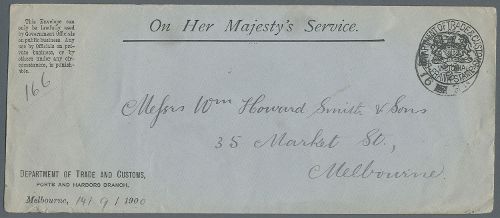 On Her Majesty's Service.
This Envelope can
only be lawfully used
by Government Officials
on public business. Any
use by Officials on pri-
vate business, or by
others under any cir-
cumstance, is punish-
able.
166
DEPARTMENT OF TRADE & CUSTOMS
FRANK STAMP
Messrs Wm Howard Smith & Sons
35 Market St.,
Melbourne.
DEPARTMENT OF TRADE AND CUSTOMS,
PORTS AND HARBORS BRANCH,
Melbourne, 14/9/1900